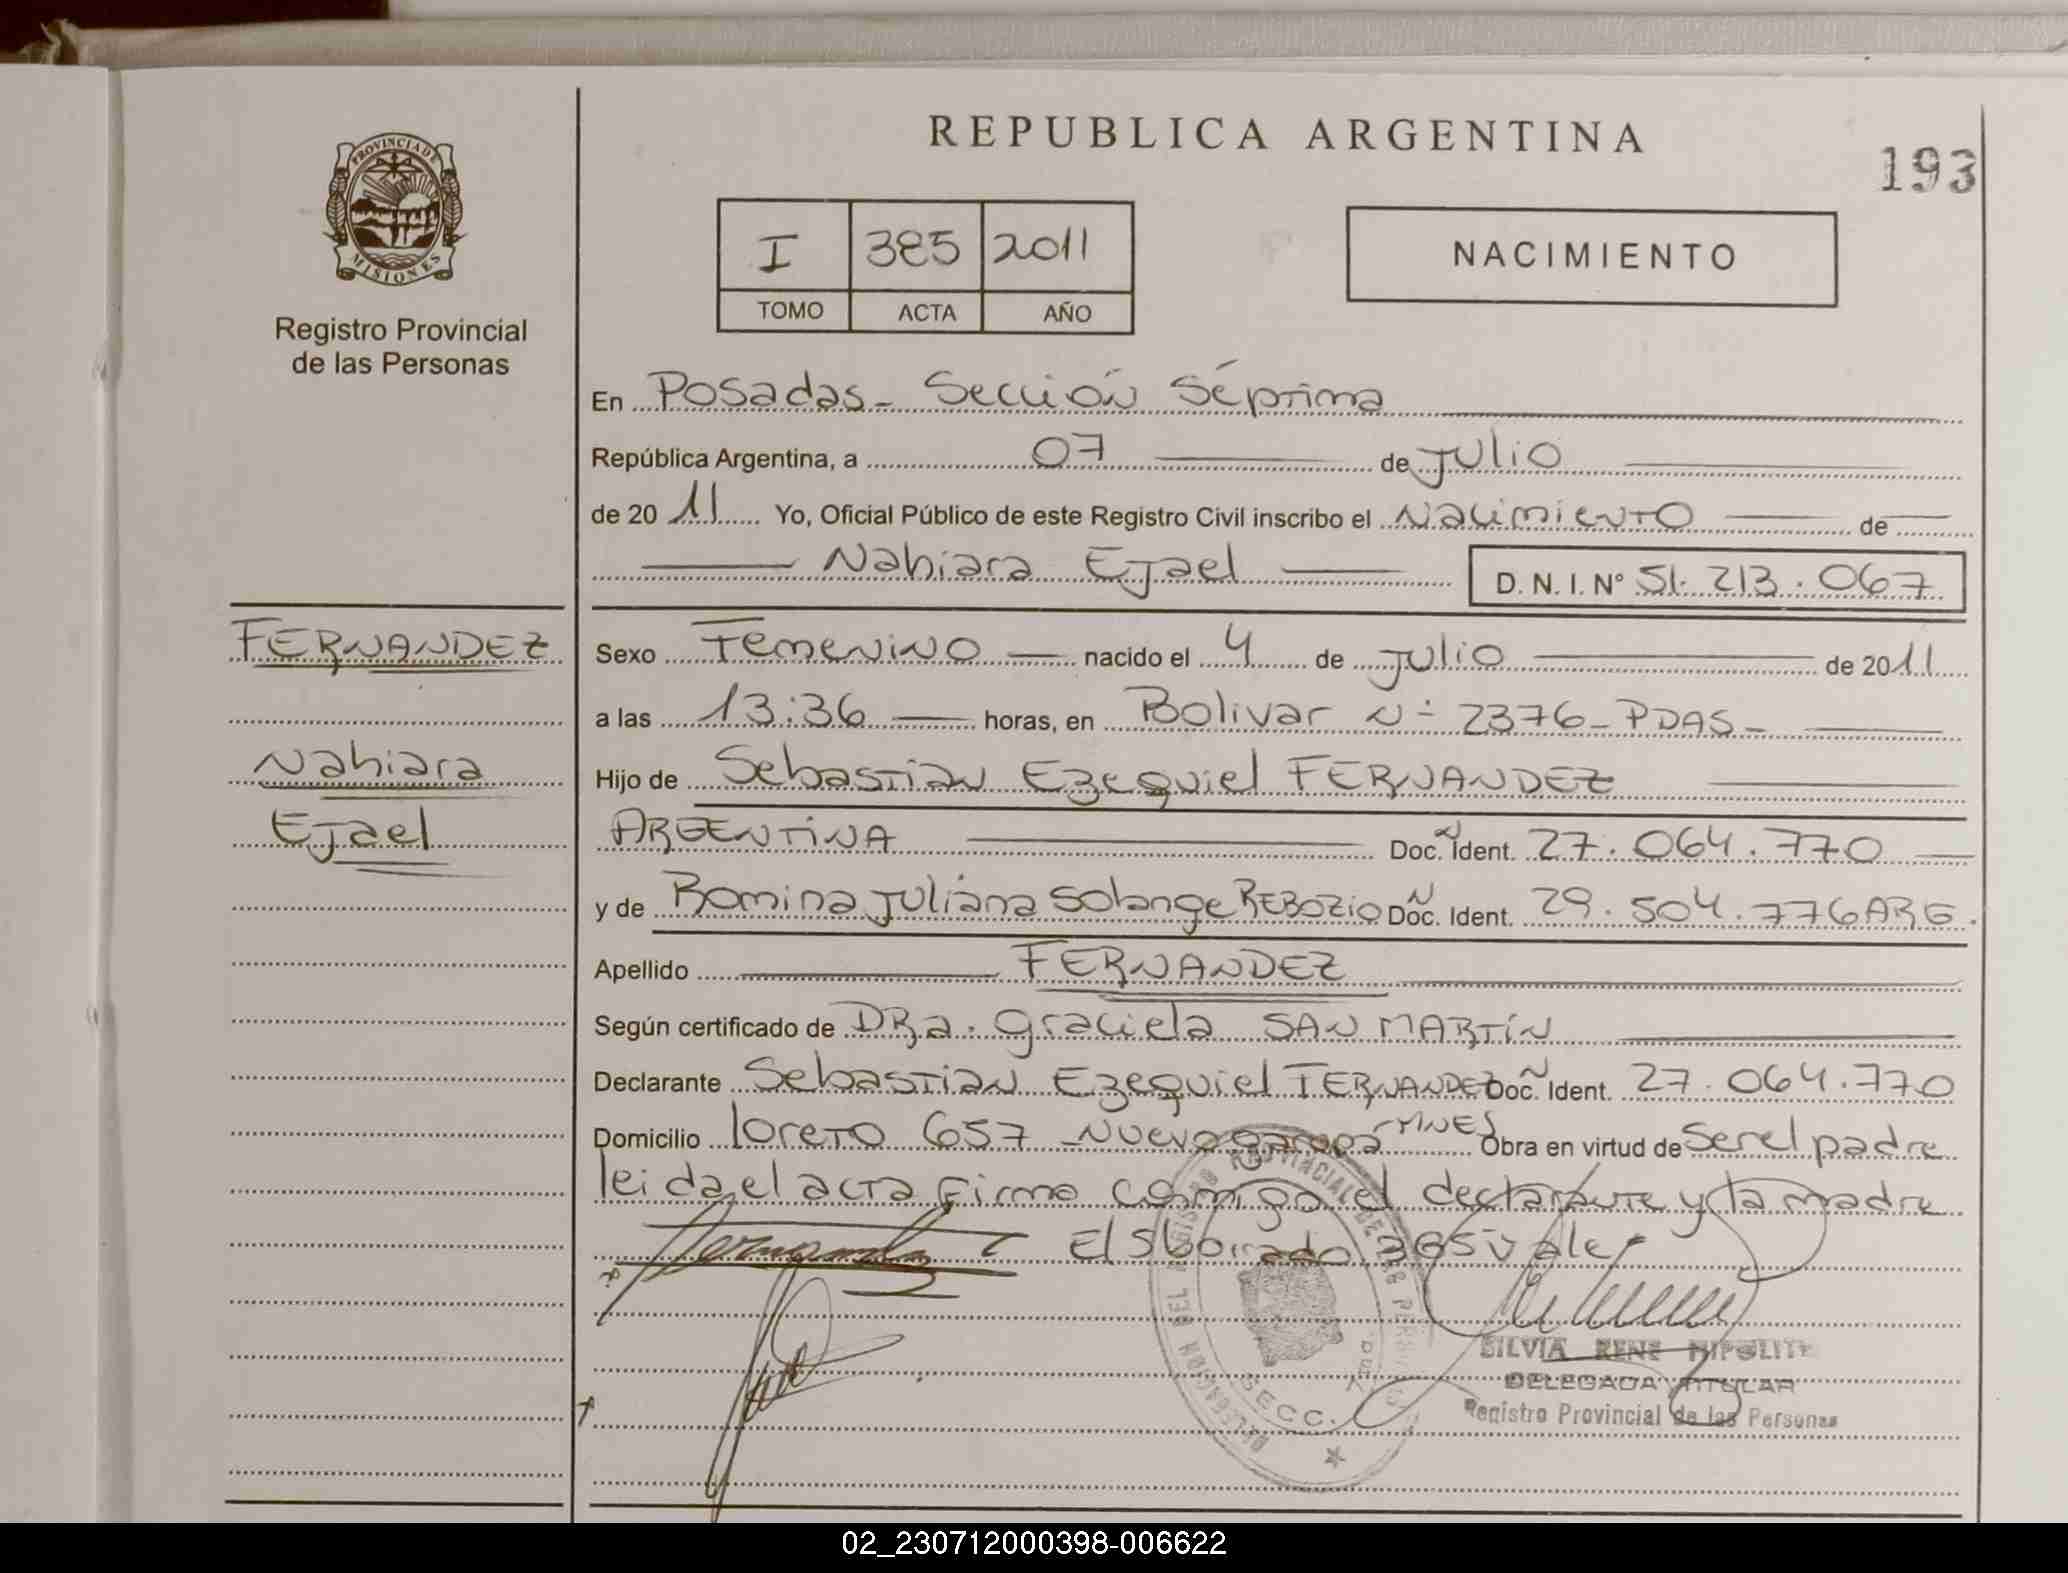 REPUBLICA ARGENTINA
193
PROVINCIA DE
MISIONES
Registro Provincial
de las Personas
I 385 2011
TOMO ACTA AÑO
NACIMIENTO
En Posadas - Sección Séptima
República Argentina, a 07 de Julio
de 2011 Yo, Oficial Público de este Registro Civil inscribo el Nacimiento de
Nahiara Ejael D. N. I. N° 51.213.067
FERNANDEZ
Nahiara
Ejael
Sexo Femenino nacido el 4 de Julio de 2011
a las 13:36 horas, en Bolivar N° 2376 - PDAS -
Hijo de Sebastian Ezequiel FERNANDEZ
ARGENTINA Doc. Ident. 27.064.770
y de Romina Juliana Solange REBOZIO Doc. Ident. 29.504.776 ARG.
Apellido FERNANDEZ
Según certificado de DRa. Graciela SAN MARTÍN
Declarante Sebastian Ezequiel FERNANDEZ Doc. Ident. 27.064.770
Domicilio Loreto 657 - Nuevo Garupá MNES Obra en virtud de Ser el padre
leida el acta firma conmigo el declarante y la madre
El borrado vale
SILVIA RENE HIPOLITE
DELEGADA TITULAR
Registro Provincial de las Personas
SECC.
02_230712000398-006622